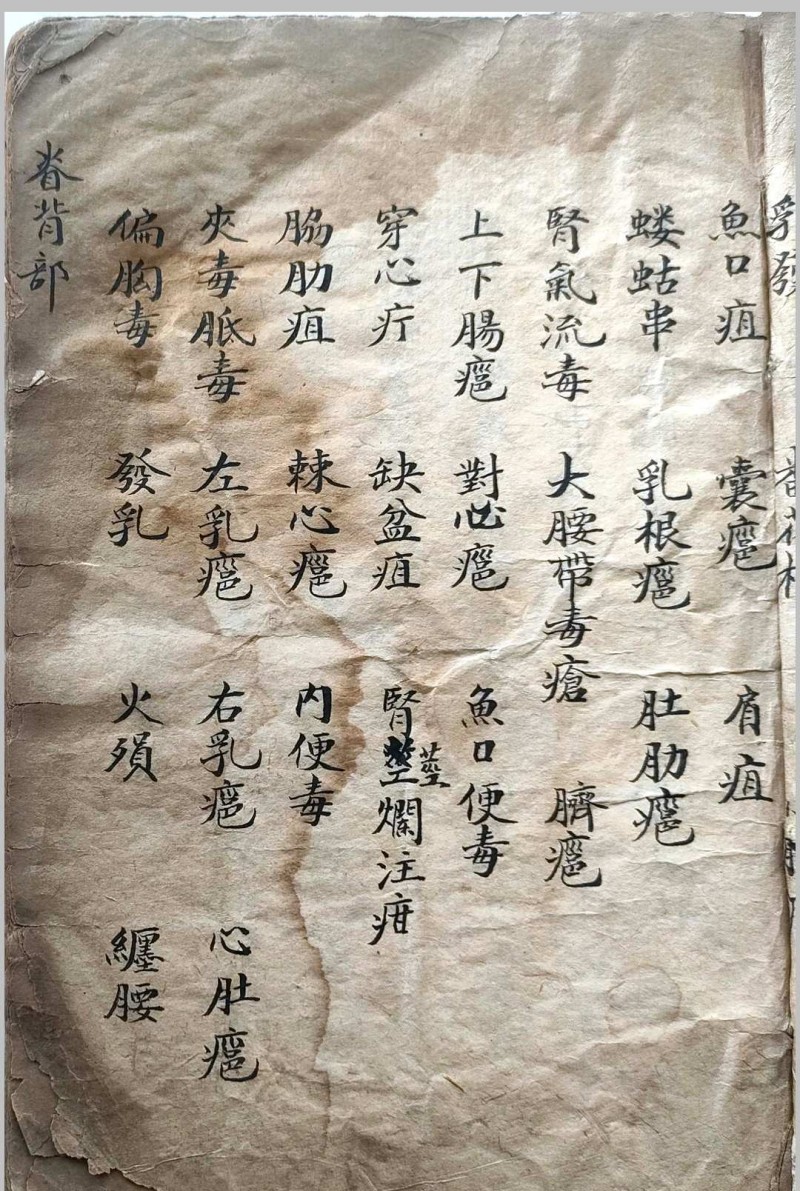 魚口疽 囊㿈 肩疽
蝼蛄串 乳根㿈 肚肋㿈
腎氣流毒 大腰帶毒瘡 臍㿈
上下腸㿈 對心㿈 魚口便毒
穿心疔 缺盆疽 腎莖爛注疳
脇肋疽 棘心㿈 内便毒
夾毒胝毒 左乳㿈 右乳㿈 心肚㿈
偏胸毒 發乳 火殞 纏腰
脊背部